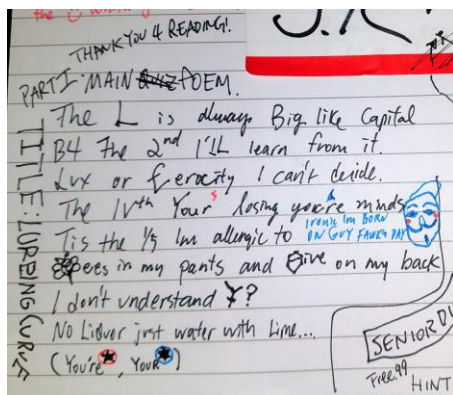 the
THANK YOU 4 READING!
PART I: MAIN POEM.
TITLE: CURVE
The L is always Big like Capital
B4 The 2nd I'LL learn from it.
Lux or £erocity I can't decide.
The IVth Your losing you're minds
Tis the 1/5 Im allergic to
Ironic Im BORN
ON GUY FAWK'S DAY
Bees in my pants and on my back
I don't understand Y?
No Liquor just water with Lime...
(You're★, YouR★)
SENIOR
Free.99
HINT